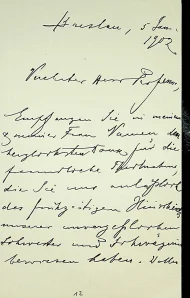 Breslau, 5 Jan.
1902
Verehrter Herr Professor,
Empfangen Sie in meinem
& meiner Frau Namen den
herzlichsten Dank für die
freundliche Theilnahme,
die Sie uns anläßlich
des frühzeitigen Hinscheidens
unserer unvergeßlichen
Schwester und Schwägerin
bewiesen haben.
12